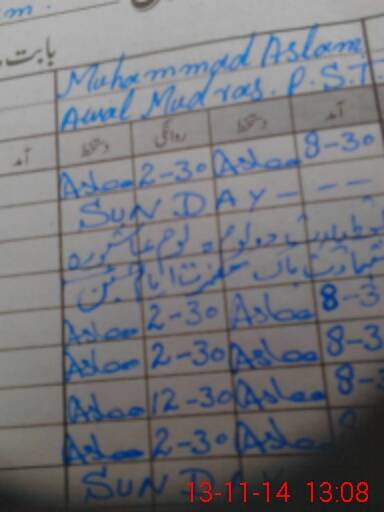 m.
بابت
Muhammad Aslam
Awal Mudras. P.S.T
آمد دستخط روانگی دستخط آمد
Aslam 2-30 Aslam 8-30
SUNDAY - - -
یوم عاشورہ
شہادت پاک حضرت امام حسین
Aslam 2-30 Aslam 8-3
Aslam 2-30 Aslam 8-3
Aslam 12-30 Aslam 8-
Aslam 2-30 Aslam 8
SUNDAY
13-11-14 13:08